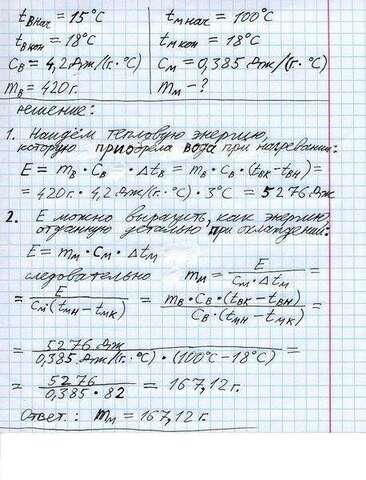 tВнач = 15°C
tВкон = 18°C
CВ = 4,2 Дж/(г.·°C)
mВ = 420 г.
tМнач = 100°C
tМкон = 18°C
CМ = 0,385 Дж/(г.·°C)
mМ - ?
решение:
1. Найдём тепловую энергию,
которую приобрела вода при нагревании:
E = mВ · CВ · ΔtВ = mВ · CВ · (tВК – tВН) =
= 420 г. · 4,2 Дж/(г.·°C) · 3°C = 5276 Дж
2. E можно выразить, как энергию,
отданную деталью при охлаждений:
E = mМ · CМ · ΔtМ
следовательно mМ = E / (CМ · ΔtМ) =
= E / (CМ · (tМН – tМК)) = mВ · CВ · (tВК – tВН) / (CВ · (tМН – tМК)) =
= 5276 Дж / (0,385 Дж/(г.·°C) · (100°C – 18°C)) =
= 5276 / (0,385 · 82) = 167,12 г.
Ответ.: mМ = 167,12 г.